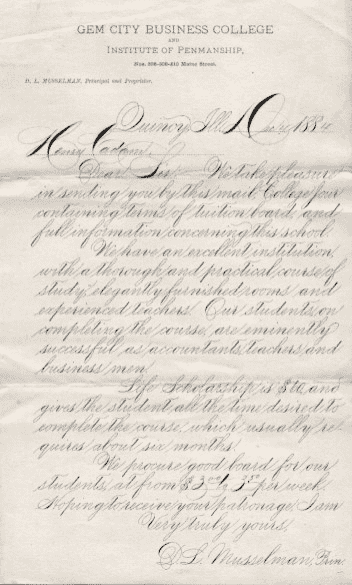 GEM CITY BUSINESS COLLEGE
AND
INSTITUTE OF PENMANSHIP,
Nos. Maine Street.
D. L. MUSSELMAN, Principal and Proprietor.
Quincy, Ill. 1884
Henry
Dear Sir We take pleasure
in sending you by this mail, College Jour
containing terms of tuition board, and
full information concerning this school.
We have an excellent institution,
with a thorough and practical course of
study, elegantly furnished rooms and
experienced teachers. Our students, on
completing the course, are eminently
successful as accountants, teachers and
business men.
Life Scholarship is and
gives the student all the time desired to
complete the course, which usually re
quires about six months.
We procure good board for our
students at from per week.
Hoping to receive your patronage, I am
Very truly yours,
D. L. Musselman, Prin.